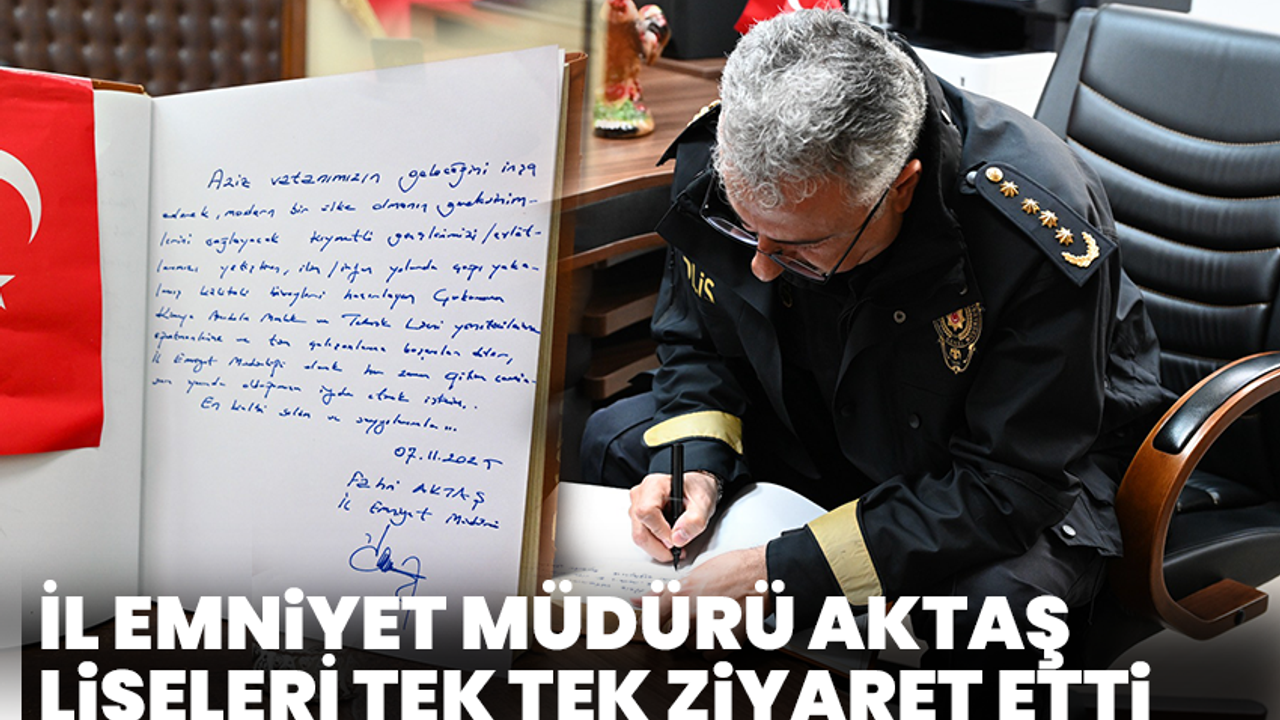 Aziz vatanımızın geleceğini inşa
ederek, modern bir ülke olmanın gereksinim-
lerini sağlayacak kıymetli gençlerimizi/evlat-
larımızı yetiştiren, ilim/irfan yolunda çağı yaka-
lamış kaliteli bireyleri hazırlayan Gökmen
Kimya Anadolu Meslek ve Teknik Lisesi yöneticilerine
öğretmenlerine ve tüm çalışanlarına başarılar diler,
İl Emniyet Müdürlüğü olarak her zaman Eğitim camia-
sının yanında olduğumuzu ifade etmek isterim..
En kalbi selam ve saygılarımla...
07.11.2025
Fahri AKTAŞ
İl Emniyet Müdürü
POLİS
İL EMNİYET MÜDÜRÜ AKTAŞ
LİSELERİ TEK TEK ZİYARET ETTİ